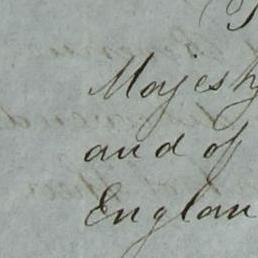 Majesty
and of
Englan